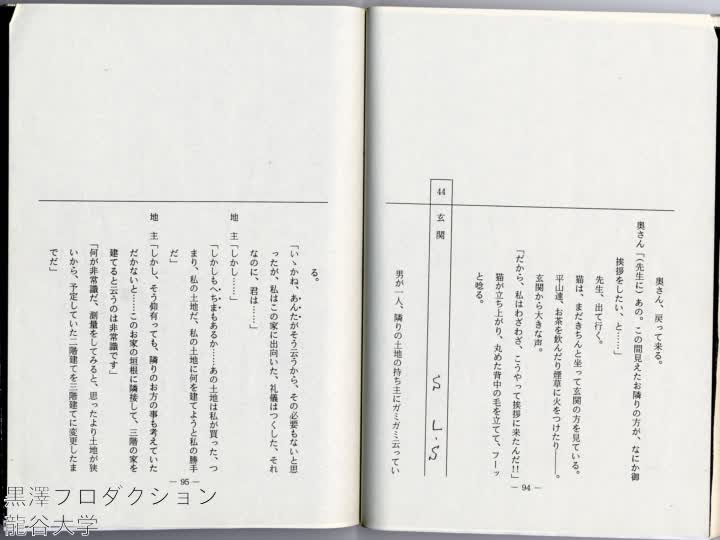 奥さん、戻って来る。
奥さん「（先生に）あの。この間見えたお隣りの方が、なにか御
挨拶をしたい、と……」
先生、出て行く。
猫は、まだきちんと坐って玄関の方を見ている。
平山達、お茶を飲んだり煙草に火をつけたり――。
玄関から大きな声。
「だから、私はわざわざ、こうやって挨拶に来たんだ!!」
猫が立ち上がり、丸めた背中の毛を立てて、フーッ
と唸る。
44 玄関
S L.S
男が一人、隣りの土地の持ち主にガミガミ云ってい
― 94 ―
る。
「いゝかね、あんたがそう云うから、その必要もないと思
ったが、私はこの家に出向いた、礼儀はつくした、それ
なのに、君は……」
地 主「しかし……」
「しかしもへちまもあるか……あの土地は私が買った、つ
まり、私の土地だ、私の土地に何を建てようと私の勝手
だ」
地 主「しかし、そう仰有っても、隣りのお方の事も考えていた
だかないと……このお家の垣根に隣接して、三階の家を
建てると云うのは非常識です」
「何が非常識だ、測量をしてみると、思ったより土地が狭
いから、予定していた二階建てを三階建てに変更したま
でだ」
― 95 ―
黒澤プロダクション
龍谷大学